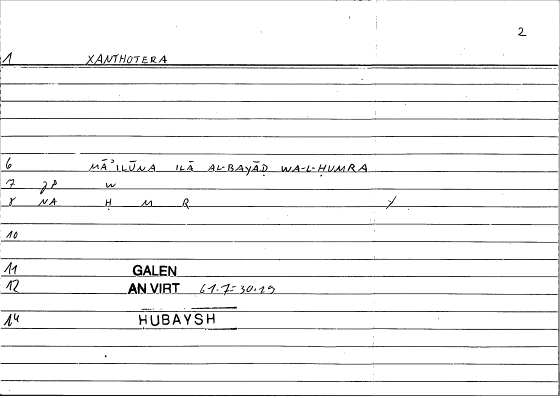 2
1 XANTHOTERA
6 MĀʾILŪNA ILĀ AL-BAYĀḌ WA-L-ḤUMRA
7 JP W
8 NA Ḥ M R Y
10
11 GALEN
12 AN VIRT 61.7=30.19
14 HUBAYSH